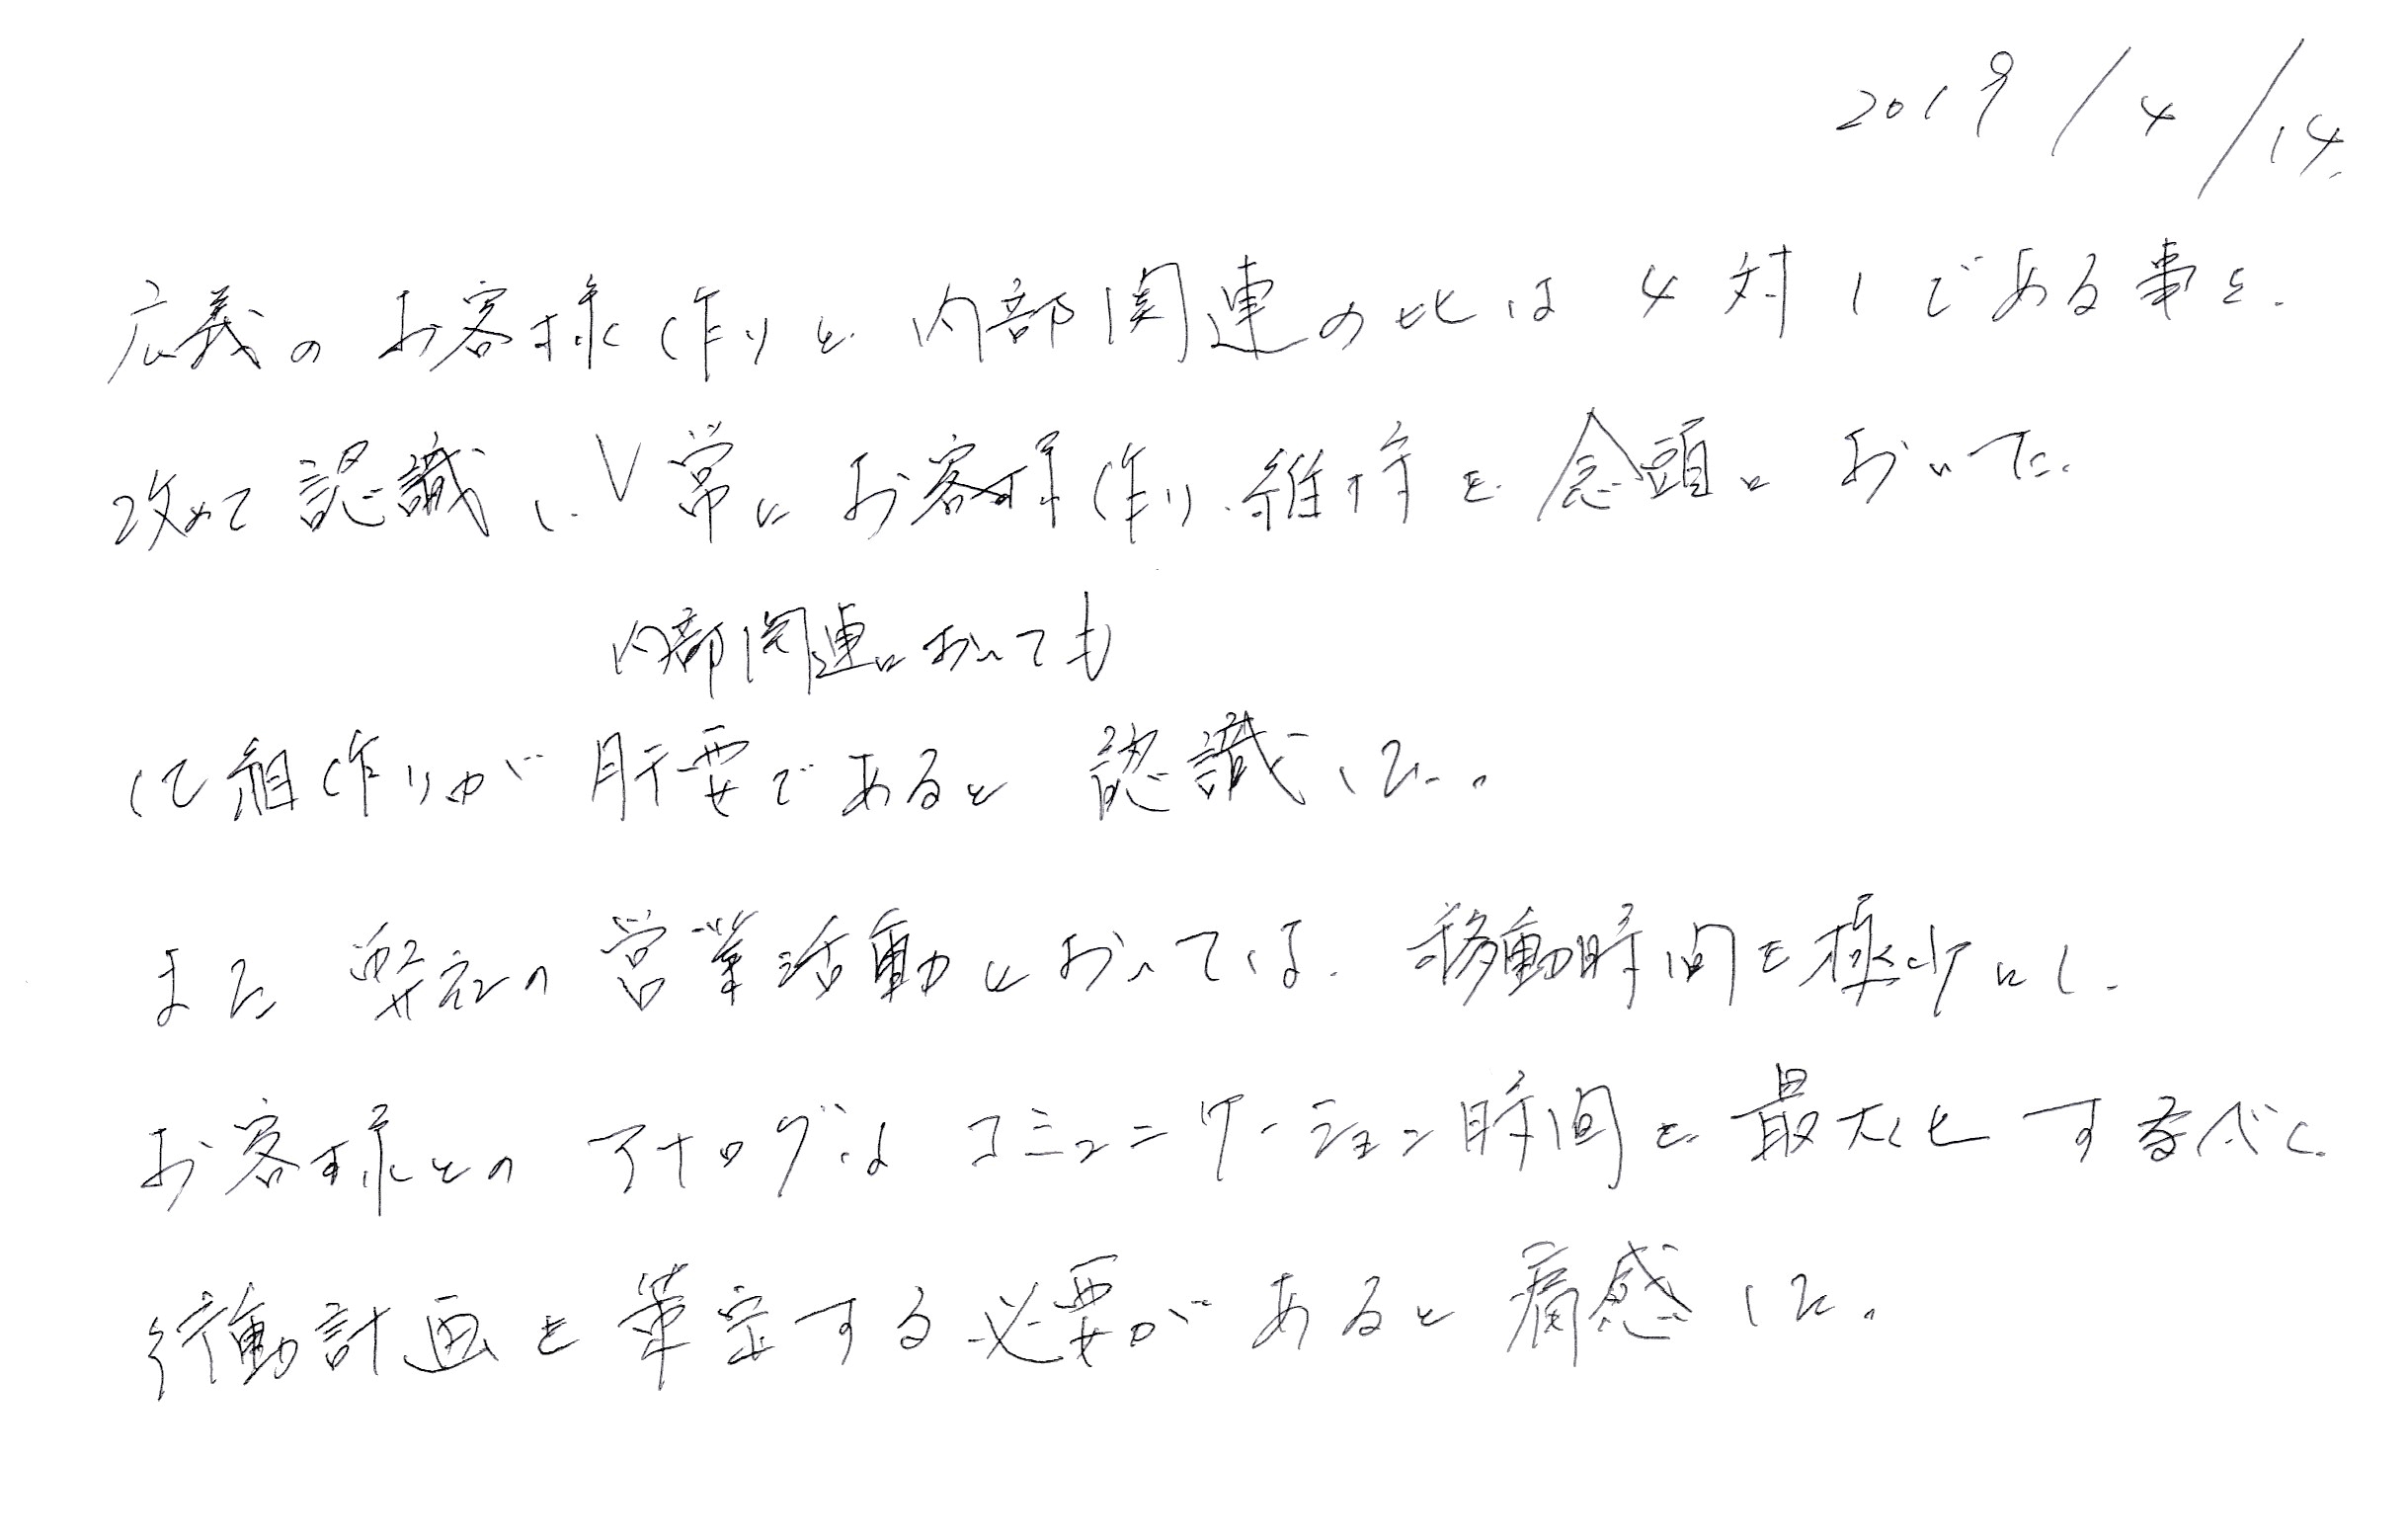 2019/4/14.
広義のお客様作りと内部関連の比は4対1である事を、
改めて認識し、V常にお客様作り、維持を念頭においた、
内部関連においても
仕組作りが肝要であると認識した。
また弊社の営業活動においては、移動時間を極少にし、
お客様とのアナログなコミュニケーション時間を最大化するべく、
行動計画を策定する必要があると痛感した。